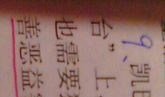 9、凯
台”上
也需要
善恶益